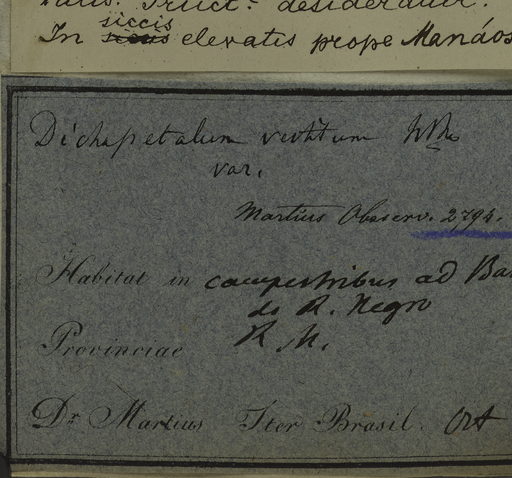 Fruct. desideratur.
In siccis elevatis prope Manáos
Dichapetalum vestitum
var.
Martius Observ. 2794.
Habitat in campestribus ad Bar
do R. Negro
Provinciae R. N.
Dr. Martius Iter Brasil. Oct